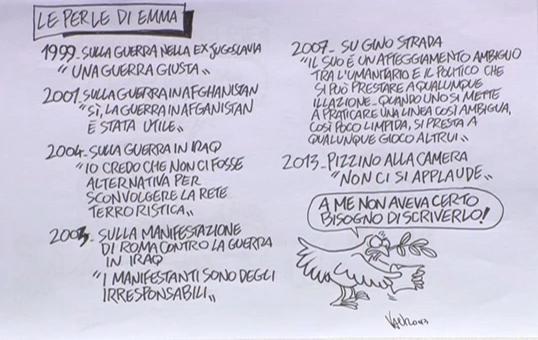 LE PERLE DI EMMA
1999_ SULLA GUERRA NELLA EX JUGOSLAVIA
"UNA GUERRA GIUSTA„
2001_ SULLA GUERRA IN AFGHANISTAN
"SÌ, LA GUERRA IN AFGANISTAN
È STATA UTILE„
2004_ SULLA GUERRA IN IRAQ
"IO CREDO CHE NON CI FOSSE
ALTERNATIVA PER
SCONVOLGERE LA RETE
TERRORISTICA„
2003_ SULLA MANIFESTAZIONE
DI ROMA CONTRO LA GUERRA
IN IRAQ
"I MANIFESTANTI SONO DEGLI
IRRESPONSABILI„
2007_ SU GINO STRADA
"IL SUO È UN ATTEGGIAMENTO AMBIGUO
TRA L'UMANITARIO E IL POLITICO CHE
SI PUÒ PRESTARE A QUALUNQUE
ILLAZIONE_ QUANDO UNO SI METTE
A PRATICARE UNA LINEA COSÌ AMBIGUA,
COSÌ POCO LIMPIDA, SI PRESTA A
QUALUNQUE GIOCO ALTRUI„
2013_ PIZZINO ALLA CAMERA
"NON CI SI APPLAUDE„
A ME NON AVEVA CERTO
BISOGNO DI SCRIVERLO!